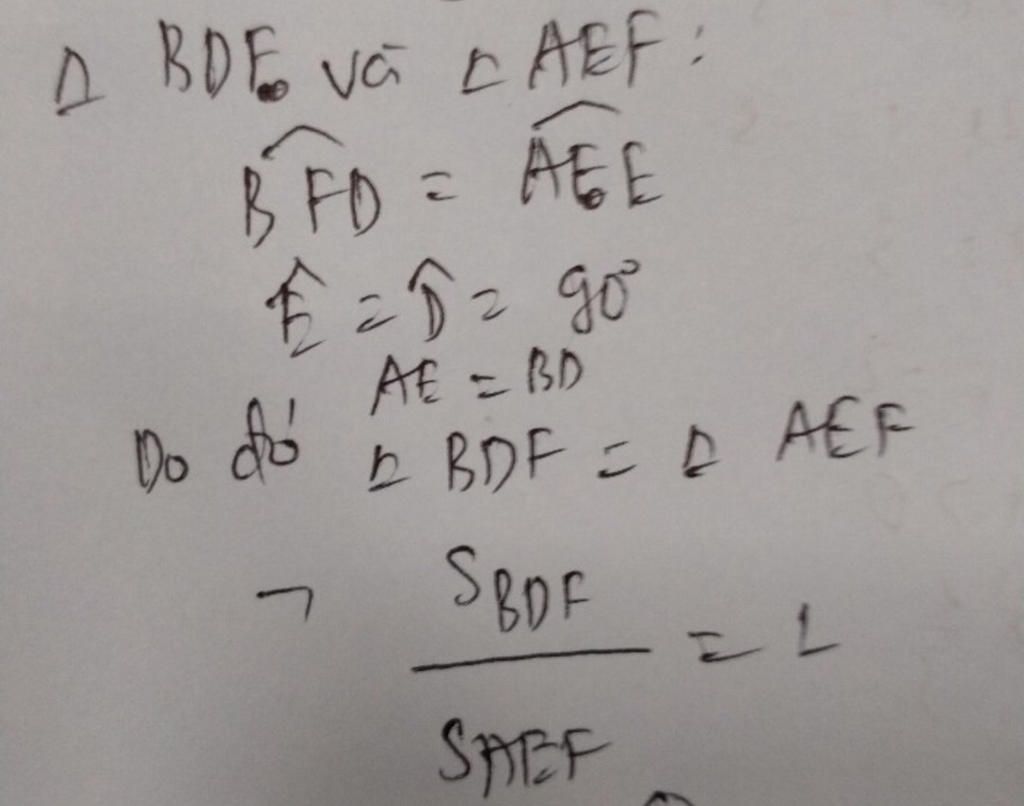 Δ BDF và Δ AEF:
$\widehat{BFD} = \widehat{AFE}$
$\widehat{E} = \widehat{D} = 90°$
AE = BD
Do đó Δ BDF = Δ AEF
→ $\frac{S_{BDF}}{S_{AEF}} = 1$